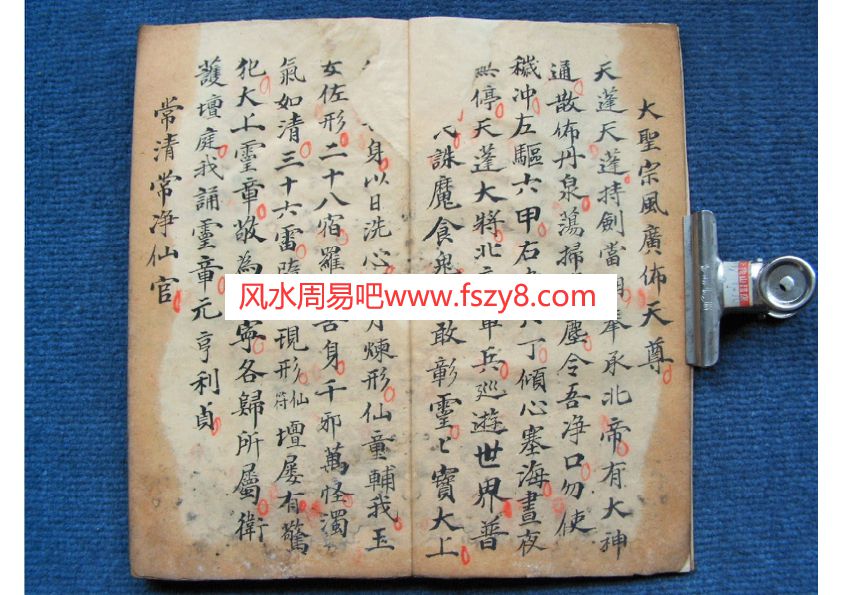 大聖宗風廣佈天尊
天蓬天蓬持劍當奉承北帝有大神
通散佈丹泉蕩掃塵令吾净口勿使
穢冲左驅六甲右丁傾心塞海晝夜
停天蓬大將北軍兵巡遊世界普
誅魔食鬼敢彰靈〻寶大上
身以日洗心煉形仙童輔我玉
女佐形二十八宿羅吾身千邪萬怪濁
氣如清三十六雷現形仙符壇屡有驚
犯大上靈章敬為寧各歸所屬衛
護壇庭我誦靈章元亨利貞
常清常净仙官
风水周易吧www.fszy8.com